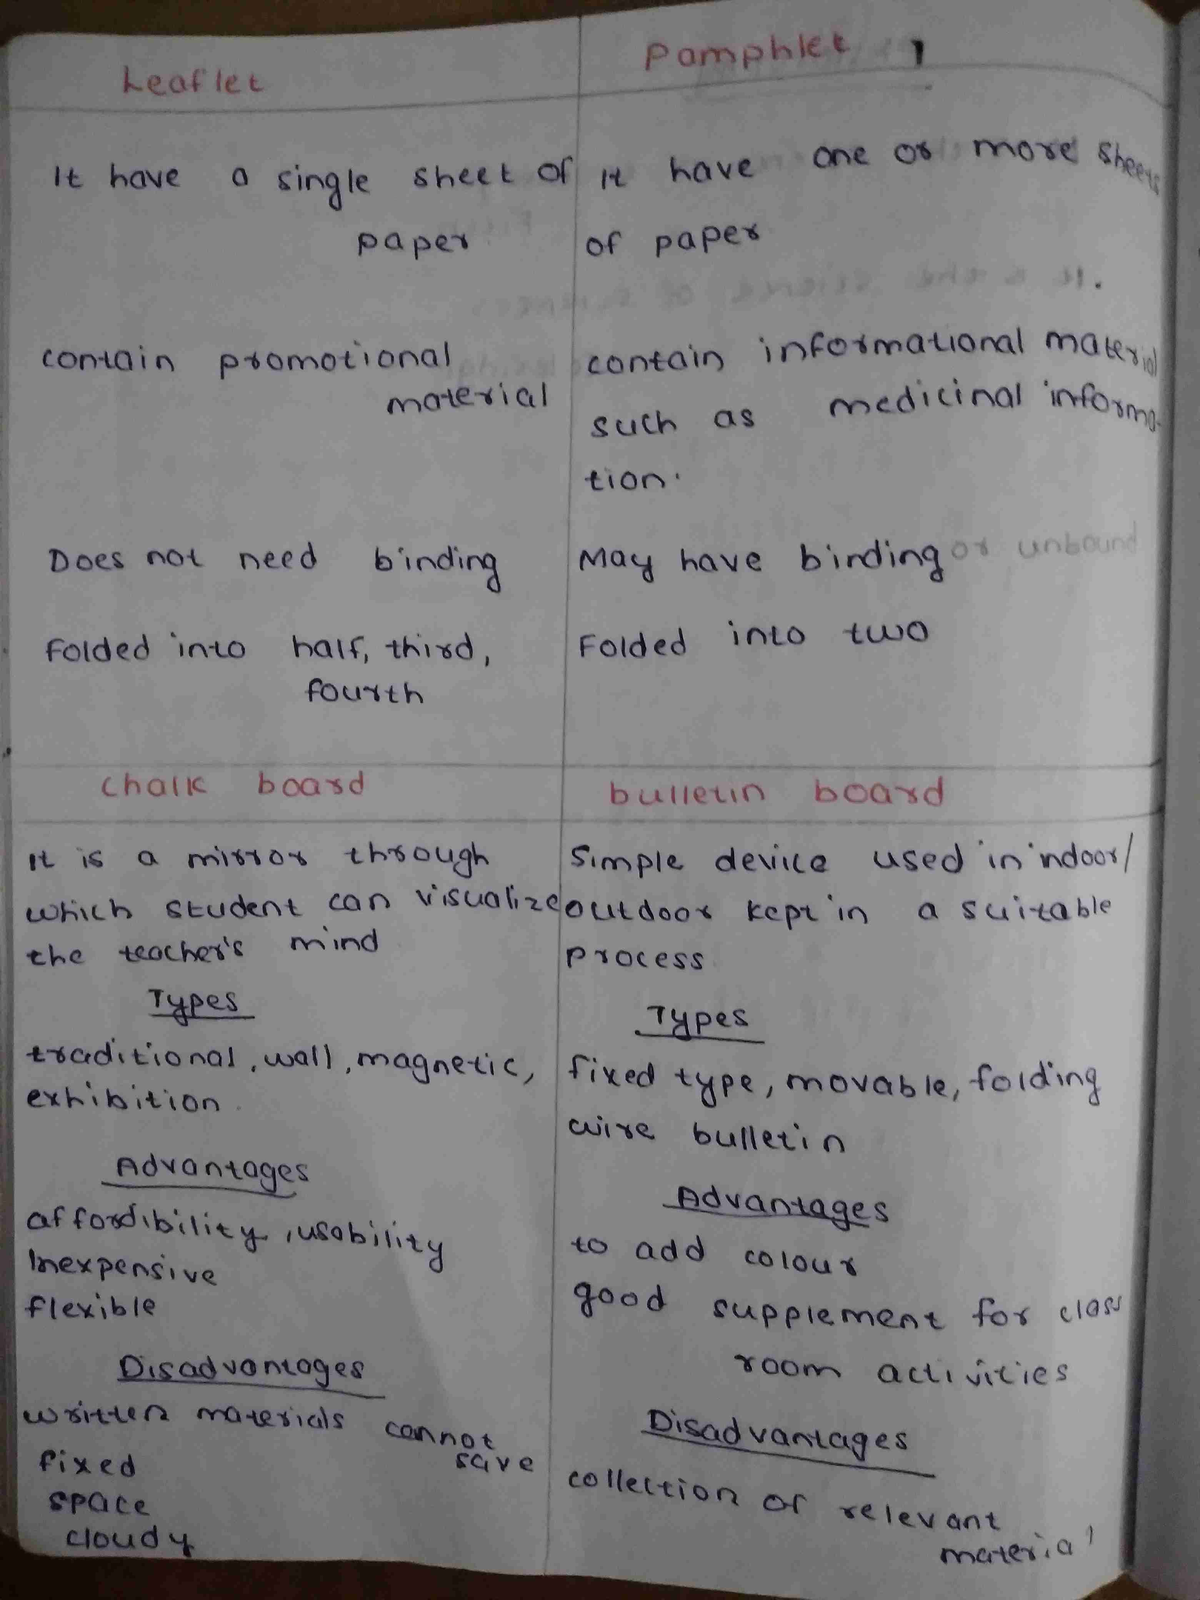 Leaflet
It have a single sheet of
paper
contain promotional
material
Does not need binding
Folded into half, third,
fourth
Pamphlet
It have one or more sheets
of paper
contain informational material
such as medicinal informa-
tion.
May have binding or unbound
Folded into two
chalk board
It is a mirror through
which student can visualize
the teacher's mind
Types
traditional, wall, magnetic,
exhibition.
Advantages
affordibility, usability
Inexpensive
flexible
Disadvantages
written materials cannot
save
fixed
space
cloudy
bulletin board
Simple device used in indoor/
outdoor kept in a suitable
process
Types
fixed type, movable, folding
wire bulletin
Advantages
to add colour
good supplement for class
room activities
Disadvantages
collection of relevant
material